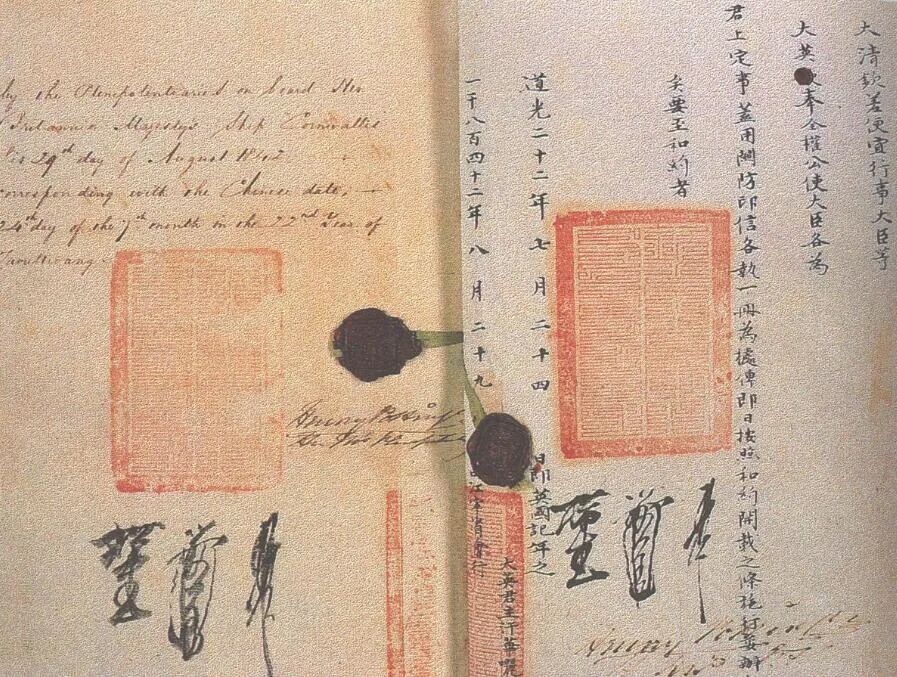 by the Plenipotentiaries on board Her
Britannic Majesty's Ship Cornwallis
29th day of August 1842
corresponding with the Chinese date,
24th day of the 7th month in the 22nd Year of
Taoukwang
Henry Pottinger
大清欽差便宜行事大臣等
大英欽奉全權公使大臣各為
君上定事蓋用關防印信各執一冊為據俾即日按照和約開載之條施行妥辦
矣要至和約者
道光二十二年七月二十四日即英國記年之
一千八百四十二年八月二十九日由江寧省會行
大英君主汗華囇
Henry Pottinger